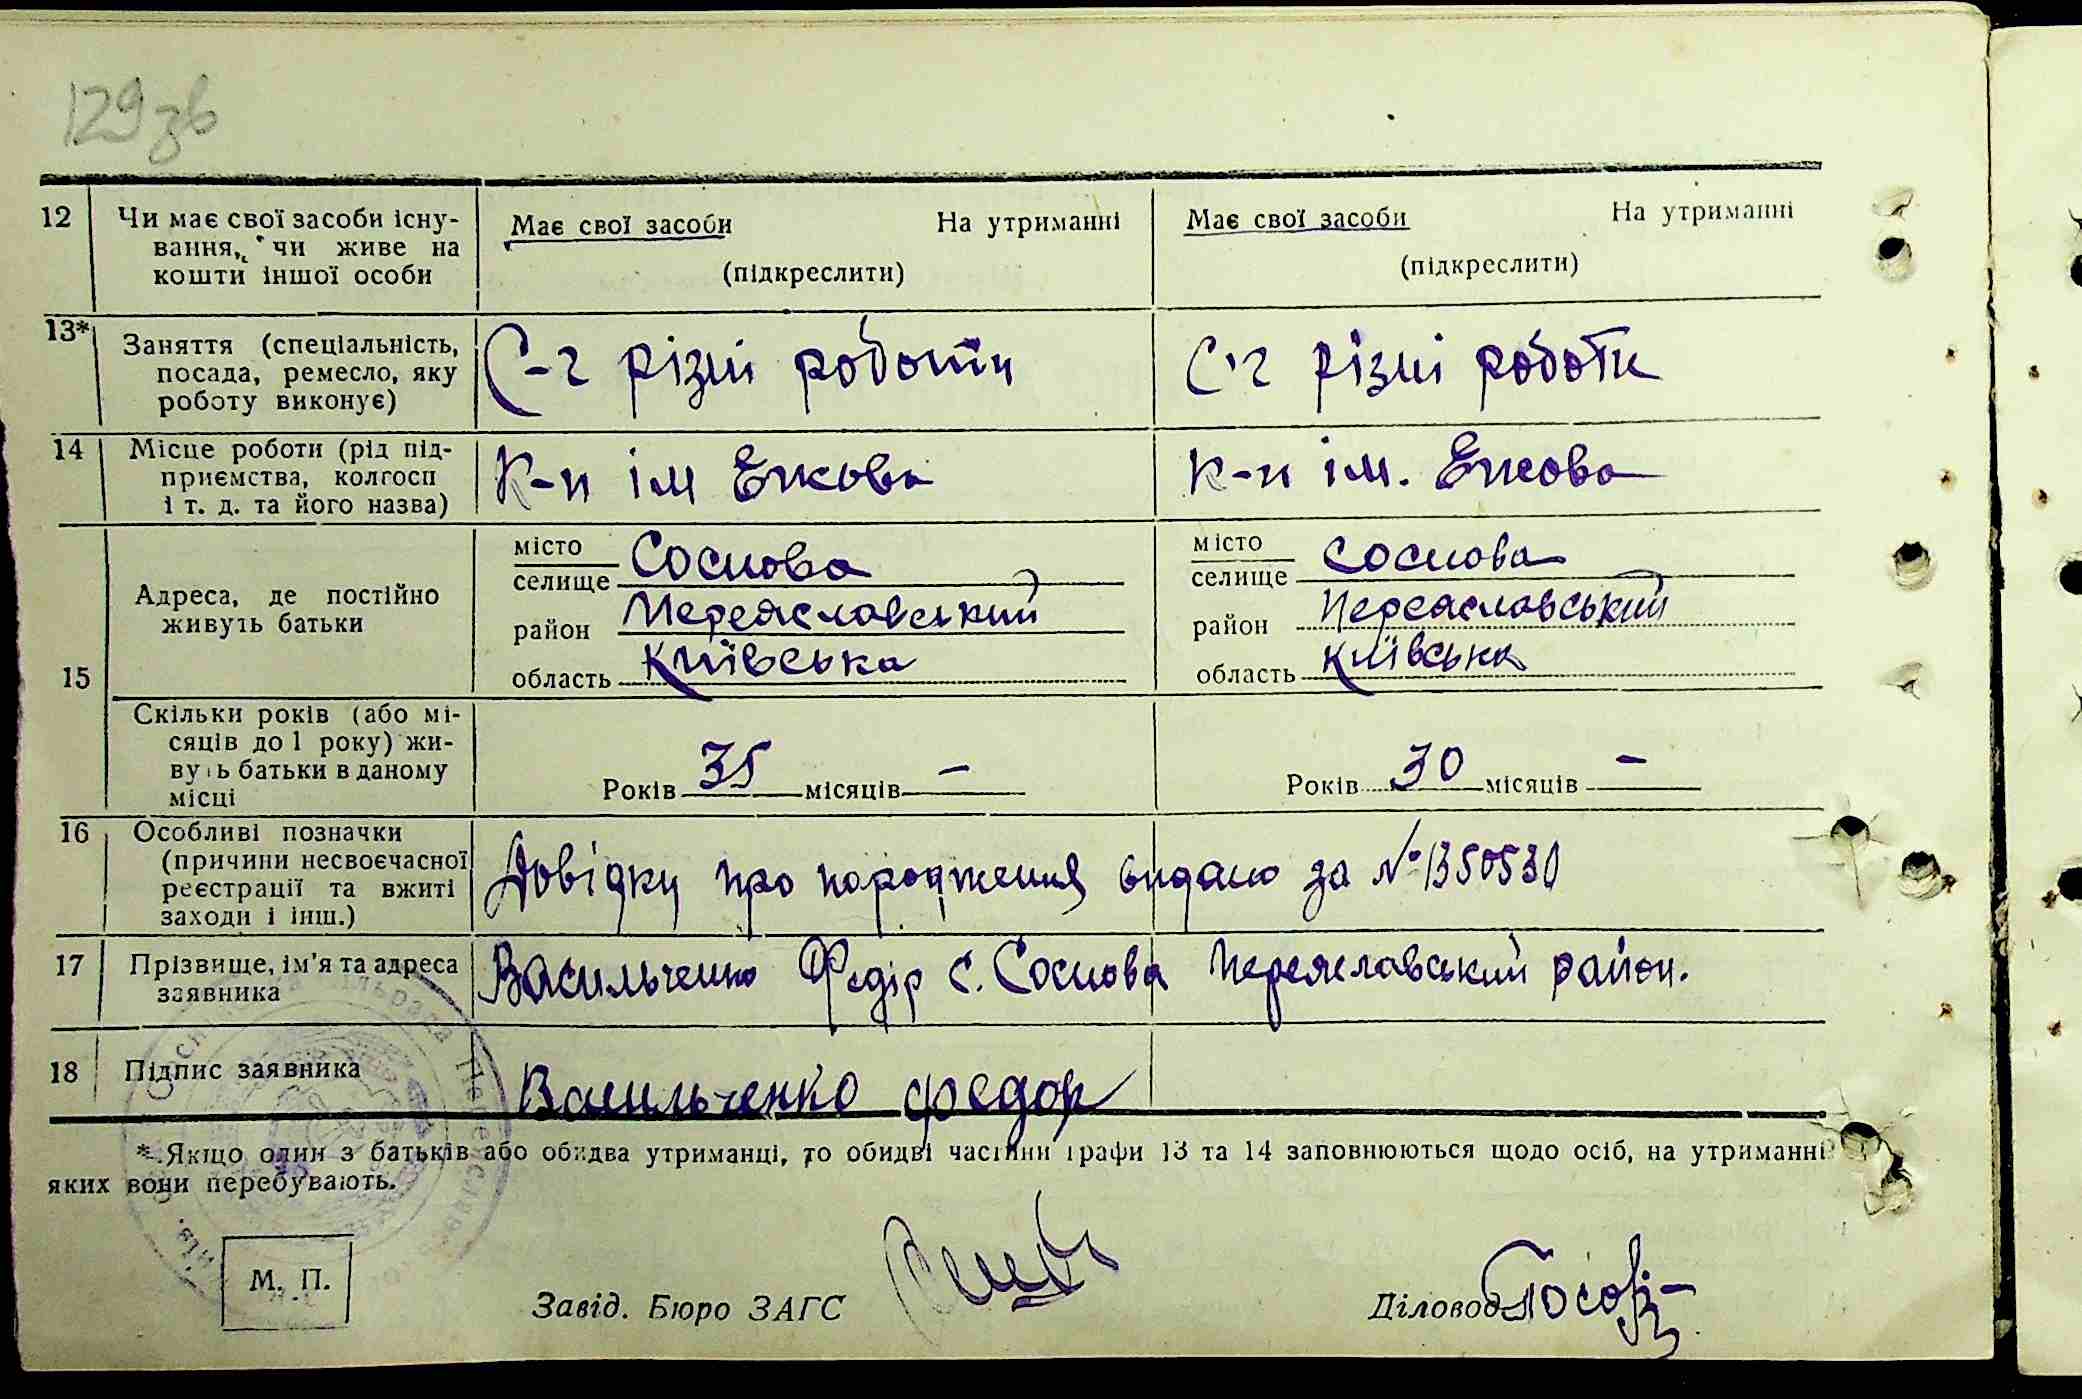 129зв
12 Чи має свої засоби існу-
вання, чи живе на
кошти іншої особи
Має свої засоби На утриманні
(підкреслити)
Має свої засоби На утриманні
(підкреслити)
13* Заняття (спеціальність,
посада, ремесло, яку
роботу виконує)
С-г різні роботи
С-г різні роботи
14 Місце роботи (рід під-
приємства, колгосп
і т. д. та його назва)
К-п ім Єжова
К-п ім. Єжова
15 Адреса, де постійно
живуть батьки
місто
селище Соснова
район Переяславський
область Київська
місто
селище Соснова
район Переяславський
область Київська
Скільки років (або мі-
сяців до 1 року) жи-
вуть батьки в даному
місці
Років 35 місяців —
Років 30 місяців —
16 Особливі позначки
(причини несвоєчасної
реєстрації та вжиті
заходи і інш.)
Довідку про народження видано за № 1350530
17 Прізвище, ім'я та адреса
заявника
Васильченко Федір с. Соснова Переяславський район.
18 Підпис заявника
Васильченко Федор
*. Якщо один з батьків або обидва утриманці, то обидві частини графи 13 та 14 заповнюються щодо осіб, на утриманні
яких вони перебувають.
М. П.
Завід. Бюро ЗАГС
Діловод